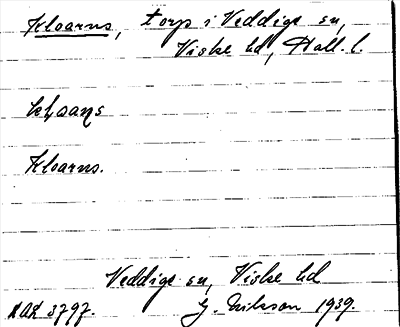 Kloarns, torp i Veddige sn,
Viske hd, Hall. l.
Kloarns.
Veddige sn, Viske hd
3797. G. Eriksson 1939.